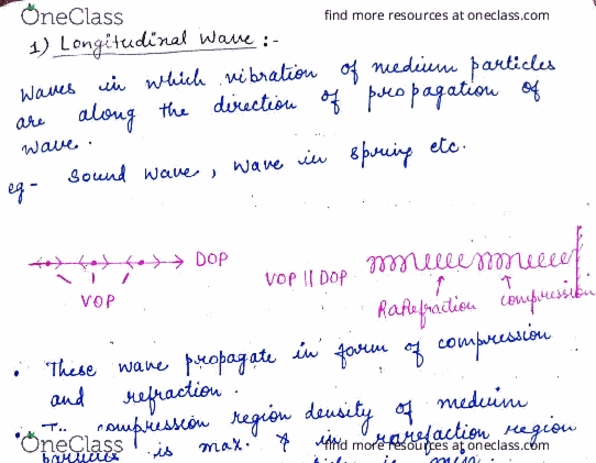 OneClass
find more resources at oneclass.com
1) Longitudinal Wave :-
Waves in which vibration of medium particles
are along the direction of propagation of
wave.
eg - Sound wave, wave in spring etc.
DOP
VOP
VOP || DOP
RaRefraction
compression
• These wave propagate in form of compression
and refraction.
• compression region density of medium
is max. & in rarefaction region
OneClass
find more resources at oneclass.com